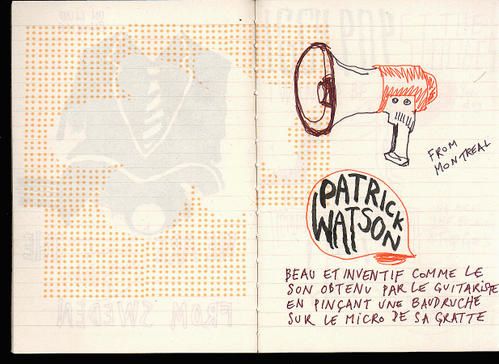 FROM SWEDEN
FROM
MONTREAL
PATRICK
WATSON
BEAU ET INVENTIF COMME LE
SON OBTENU PAR LE GUITARISTE
EN PINÇANT UNE BAUDRUCHE
SUR LE MICRO DE SA GRATTE